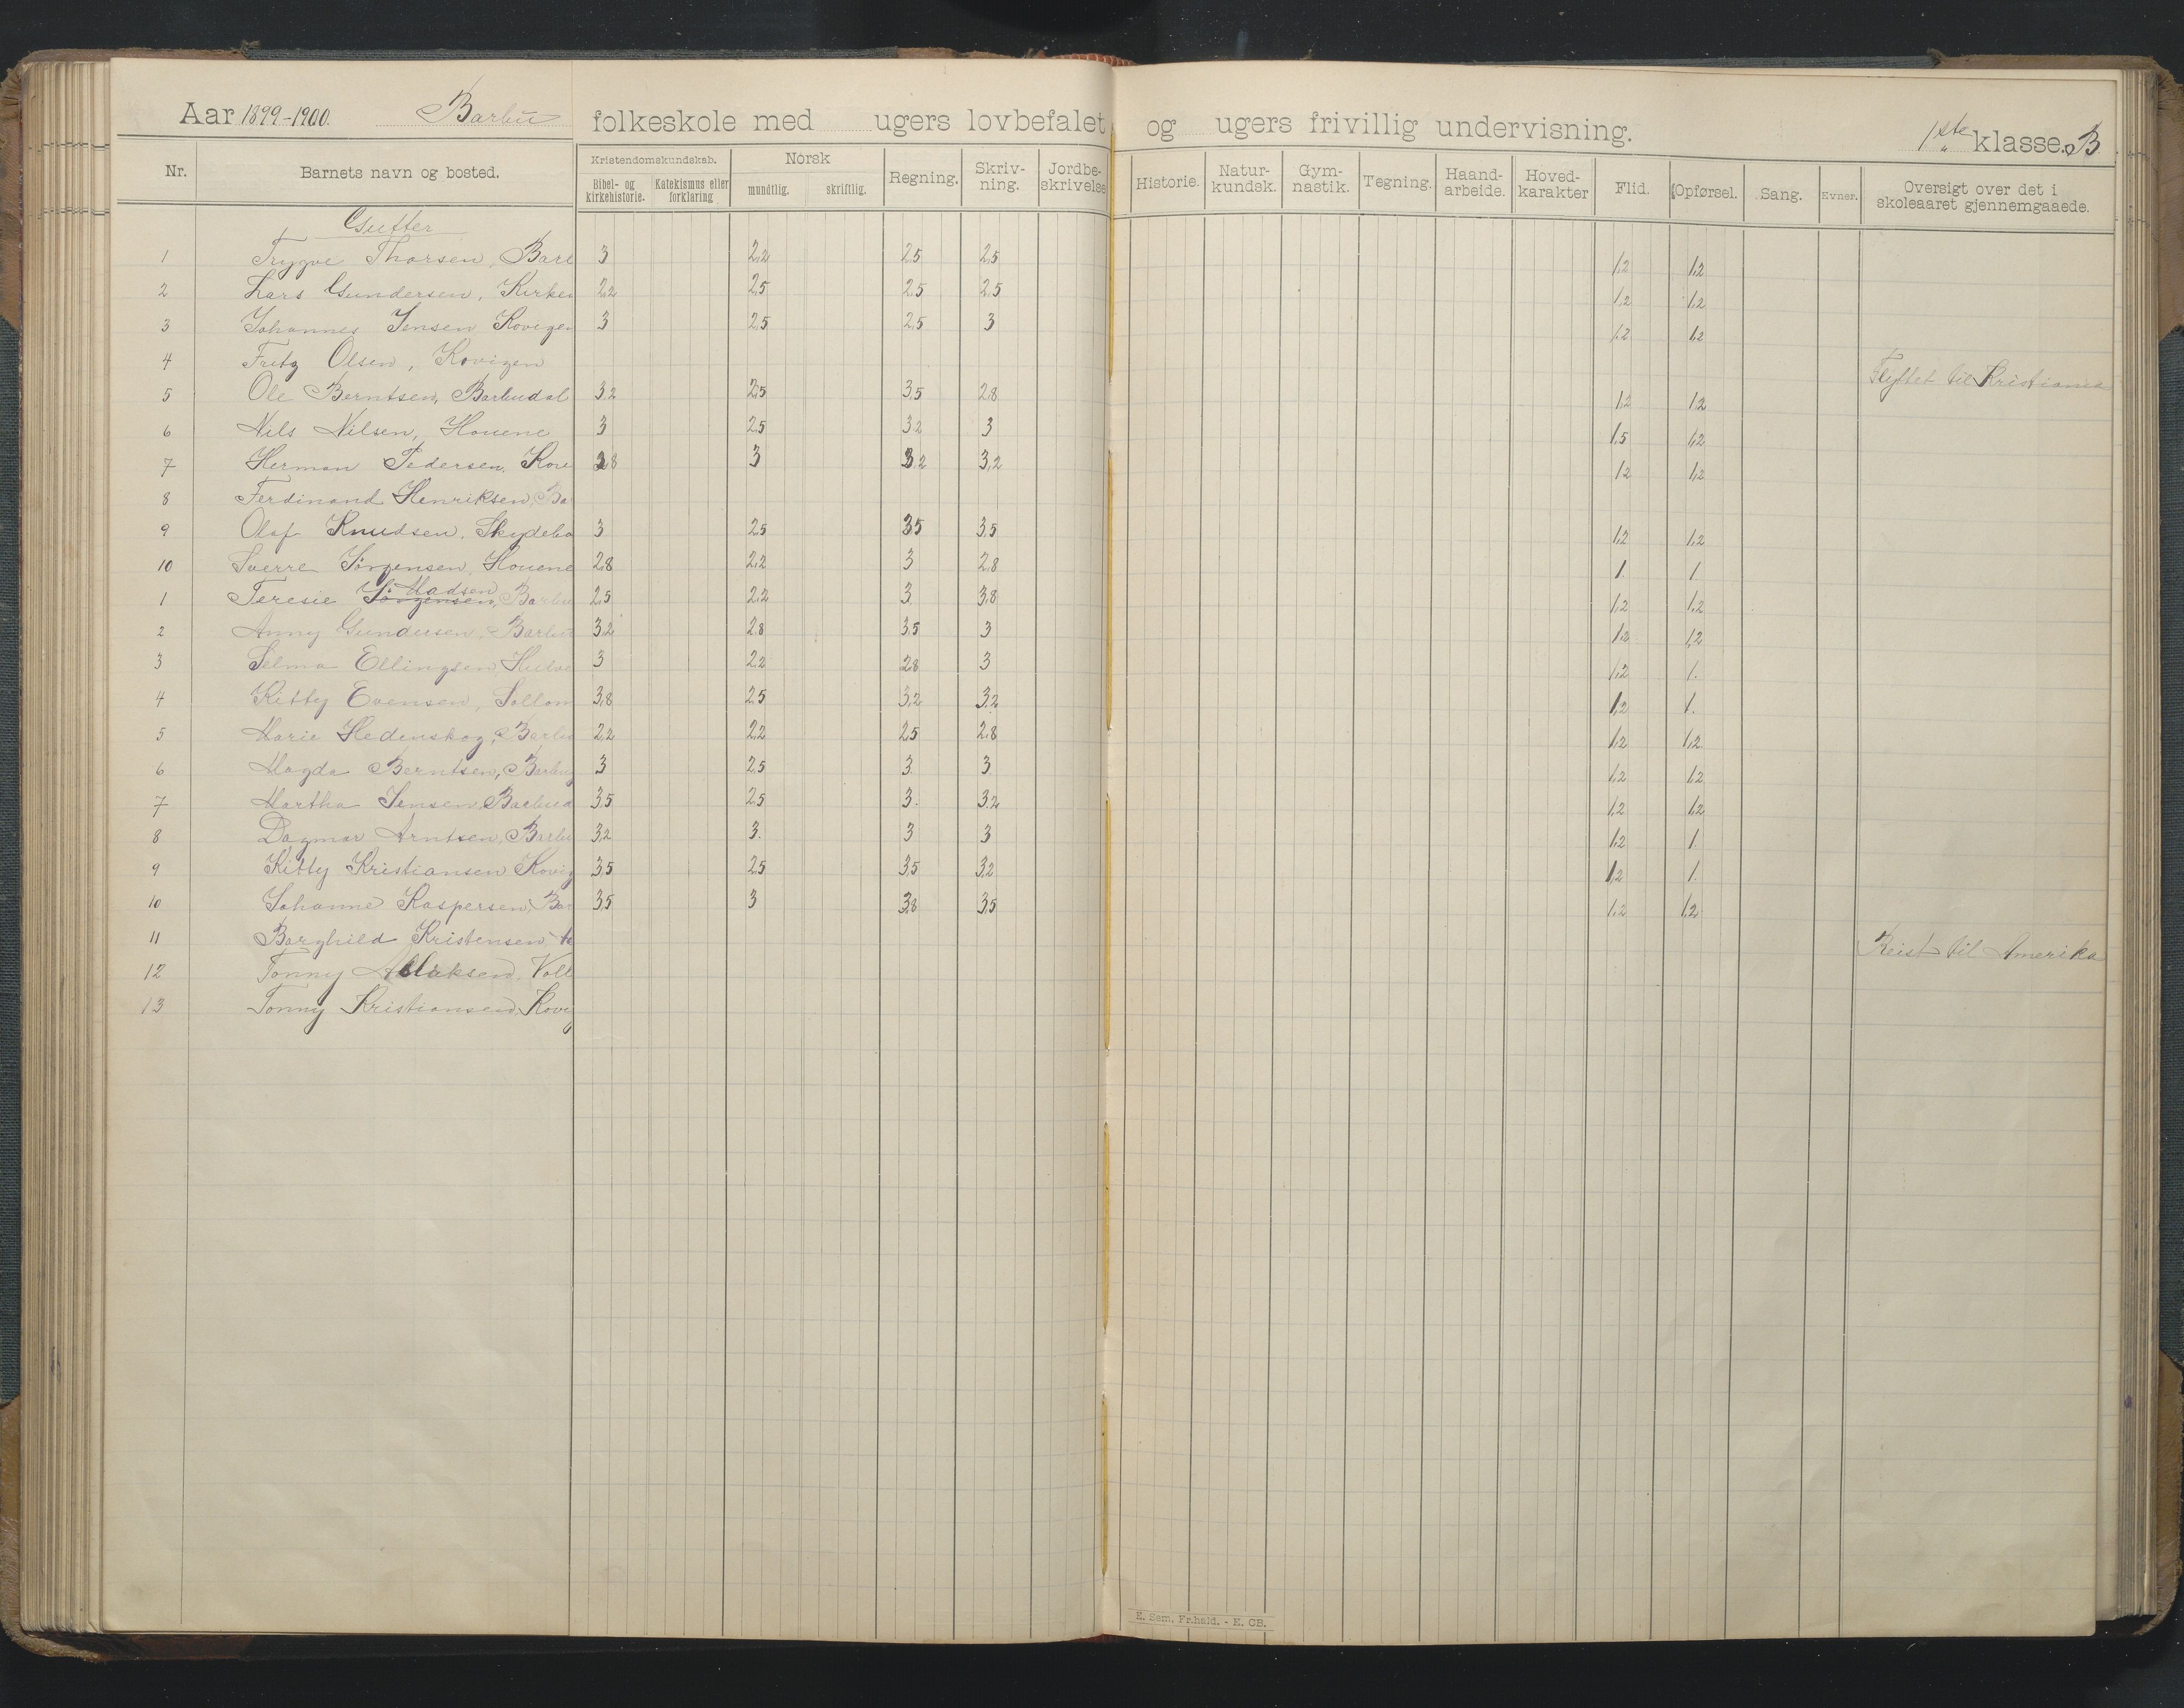 Aar 1899-1900. Barbu folkeskole med ugers lovbefalet og ugers frivillig undervisning. 1ste klasse. B
Nr. Barnets navn og bosted. Kristendomskundskab. Bibel- og kirkehistorie. Katekismus eller forklaring Norsk mundtlig. skriftlig. Regning. Skriv-ning. Jordbe-skrivelse Historie. Natur-kundsk. Gym-nastik. Tegning. Haand-arbeide. Hoved-karakter Flid. Opførsel. Sang. Evner. Oversigt over det i skoleaaret gjennemgaaede.
Gutter
1 Trygve Thorsen, Barb 3 2,2 2,5 2,5 1,2 1,2
2 Lars Gundersen, Kirke 2,2 2,5 2,5 2,5 1,2 1,2
3 Johannes Jensen Kovigen 3 2,5 2,5 3 1,2 1,2
4 Fritz Olsen, Kovigen Flyttet til Kristiania
5 Ole Berntsen, Barbudal 3,2 2,5 3,5 2,8 1,2 1,2
6 Nils Nilsen, Houene 3 2,5 3,2 3 1,5 1,2
7 Herman Pedersen, Kov 3,8 3 3,2 3,2 1,2 1,2
8 Ferdinand Henriksen, Ba
9 Olaf Knudsen, Skydeba 3 2,5 3,5 3,5 1,2 1,2
10 Sverre Jörgensen, Houene 2,8 2,2 3 2,8 1. 1
1 Teresie Jörgensen Madsen, Barbu 2,5 2,2 3. 3,8 1,2 1,2
2 Anny Gundersen, Barbu 3,2 2,8 3,5 3 1,2 1,2
3 Selma Ellingsen, 3 2,2 2,8 3 1,2 1.
4 Kitty Evensen, Sollom 3,8 2,5 3,2 3,2 1,2 1.
5 Marie Hedenskog, Barbu 2,2 2,2 2,5 2,8 1,2 1,2
6 Magda Berntsen, Barbu 3 2,5 3. 3 1,2 1,2
7 Martha Jensen, Barbud 3,5 2,5 3. 3,2 1,2 1,2
8 Dagmar Arntsen, Barbu 3,2 3. 3 3 1,2 1.
9 Kitty Kristiansen Kovig 3,5 2,5 3,5 3,2 1,2 1.
10 Johanne Kaspersen, Bar 3,5 3 3,8 3,5 1,2 1,2
11 Borghild Kristensen, Reist til Amerika
12 Tonny Voll
13 Tonny Kristiansen, Kovig
E. Sem. Fr.hald. - E. CB.